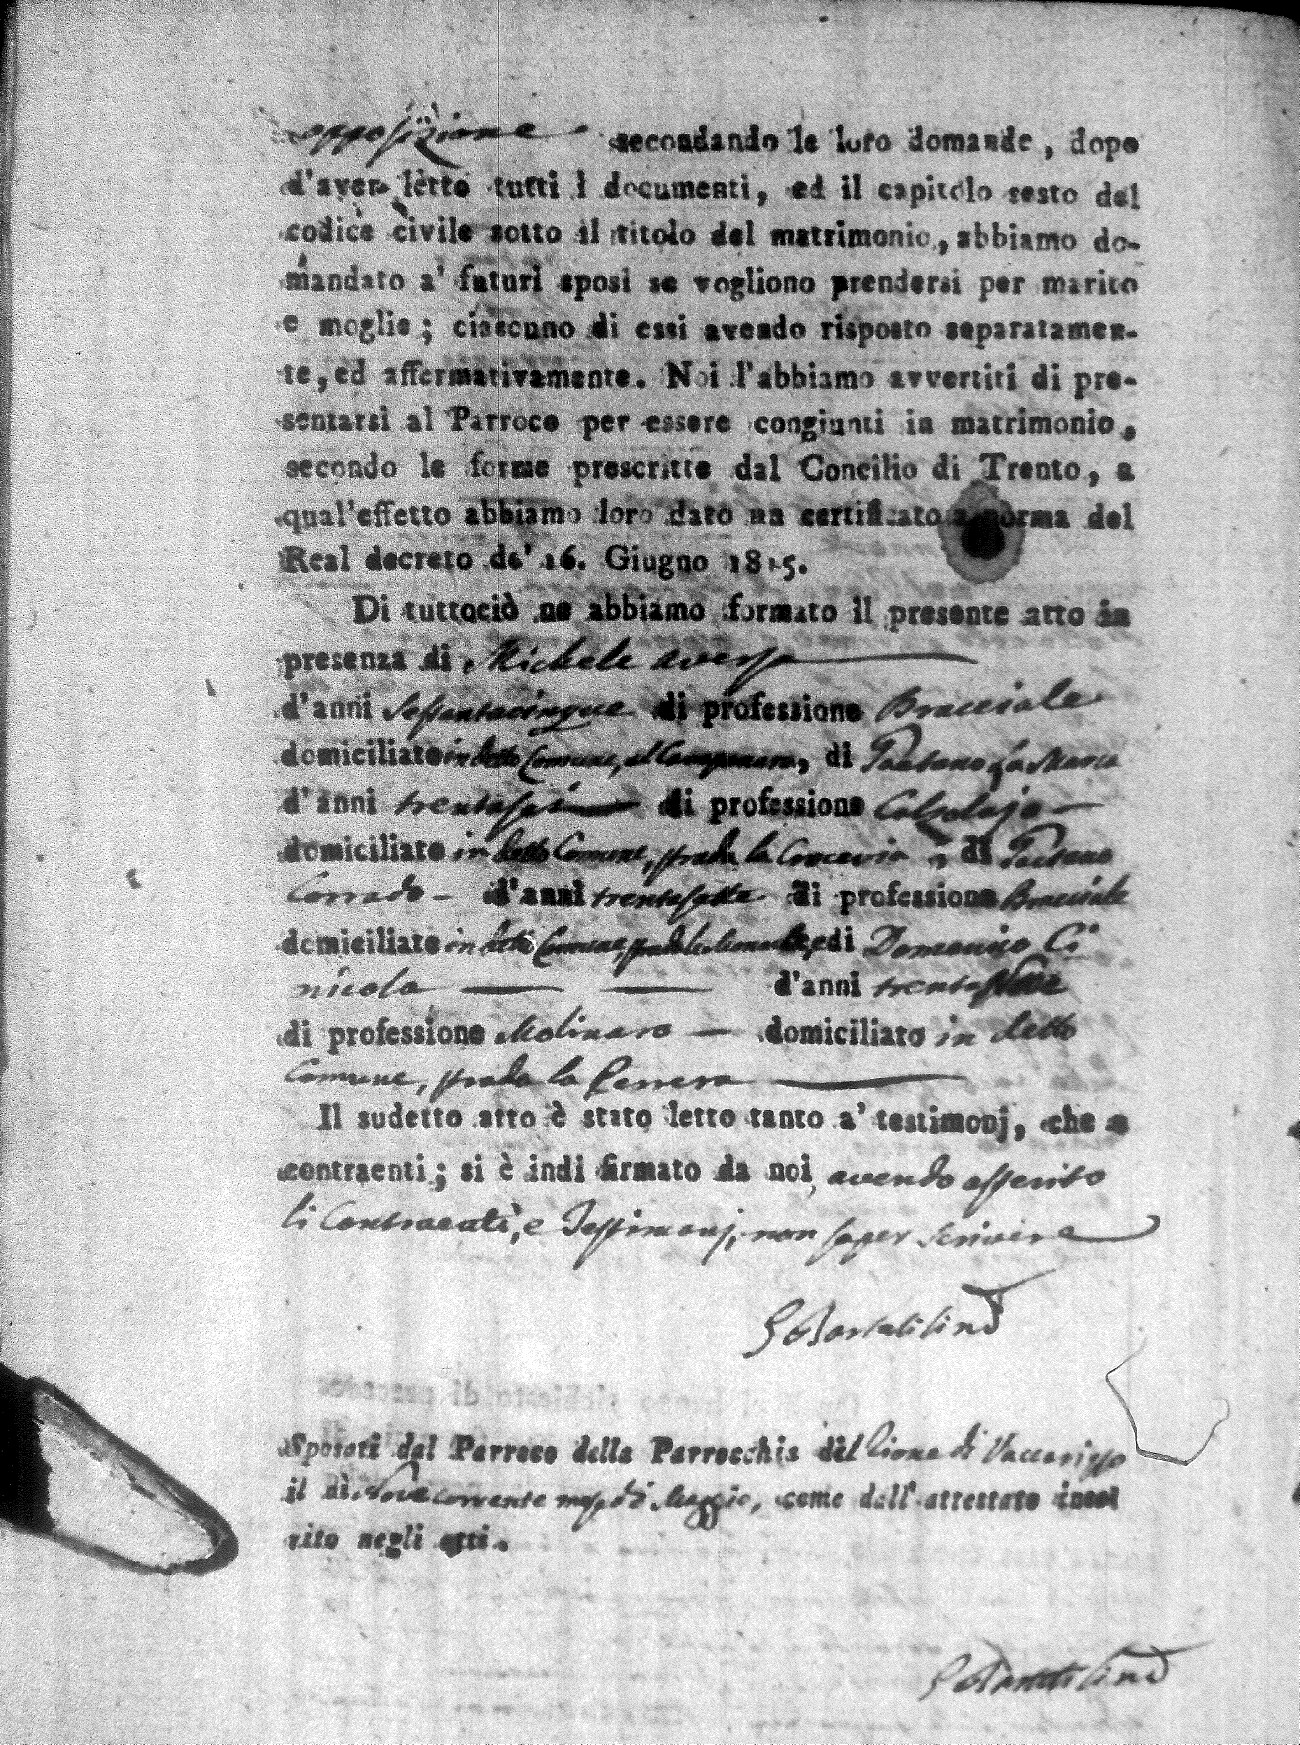 opposizione secondando le loro domande, dopo
d'aver letto tutti i documenti, ed il capitolo sesto del
codice civile sotto il titolo del matrimonio, abbiamo do-
mandato a' futuri sposi se vogliono prendersi per marito
e moglie; ciascuno di essi avendo risposto separatamen-
te, ed affermativamente. Noi l'abbiamo avvertiti di pre-
sentarsi al Parroco per essere congiunti in matrimonio,
secondo le forme prescritte dal Concilio di Trento, a
qual'effetto abbiamo loro dato un certificato a norma del
Real decreto de' 16. Giugno 1815.
Di tuttociò ne abbiamo formato il presente atto in
presenza di Michele Aversa
d'anni sessantacinque di professione Bracciale
domiciliato in detto Comune, al Campanaro, di Gaetano La Marca
d'anni trentasei di professione Calzolajo
domiciliato in detto Comune, strada la Crocevia e di Gaetano
Corrado d'anni trentasette di professione Bracciale
domiciliato in detto Comune, strada, e di Domenico Ci
nicola d'anni
di professione Molinaro domiciliato in detto
Comune, strada la
Il sudetto atto è stato letto tanto a' testimonj, che a
contraenti; si è indi firmato da noi, avendo asserito
li Contraenti, e Testimonj, non saper scrivere
Sposati dal Parroco della Parrocchia del Rione di Vaccarizzo
il dì Nove corrente mese di Maggio, come dall'attestato inse
rito negli atti.